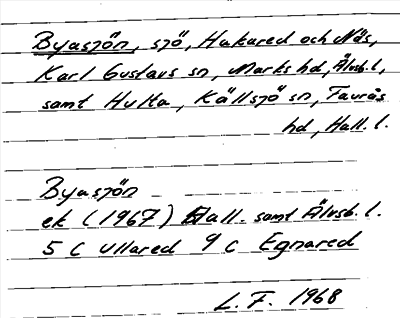 Byasjön, sjö, Hakared och Näs,
Karl Gustavs sn, Marks hd, Älvsb. l,
samt Hulta, Källsjö sn, Faurås
hd, Hall. l.
Byasjön
ek (1967) Hall. samt Älvsb. l.
5 C Ullared 9 C Egnared
L. F. 1968